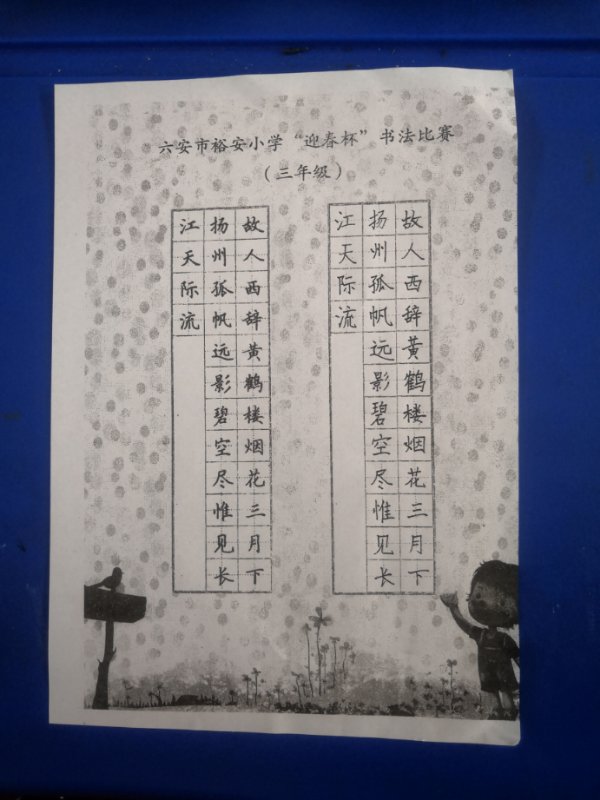 六安市裕安小学“迎春杯”书法比赛
（三年级）
故人西辞黄鹤楼烟花三月下
扬州孤帆远影碧空尽惟见长
江天际流
故人西辞黄鹤楼烟花三月下
扬州孤帆远影碧空尽惟见长
江天际流